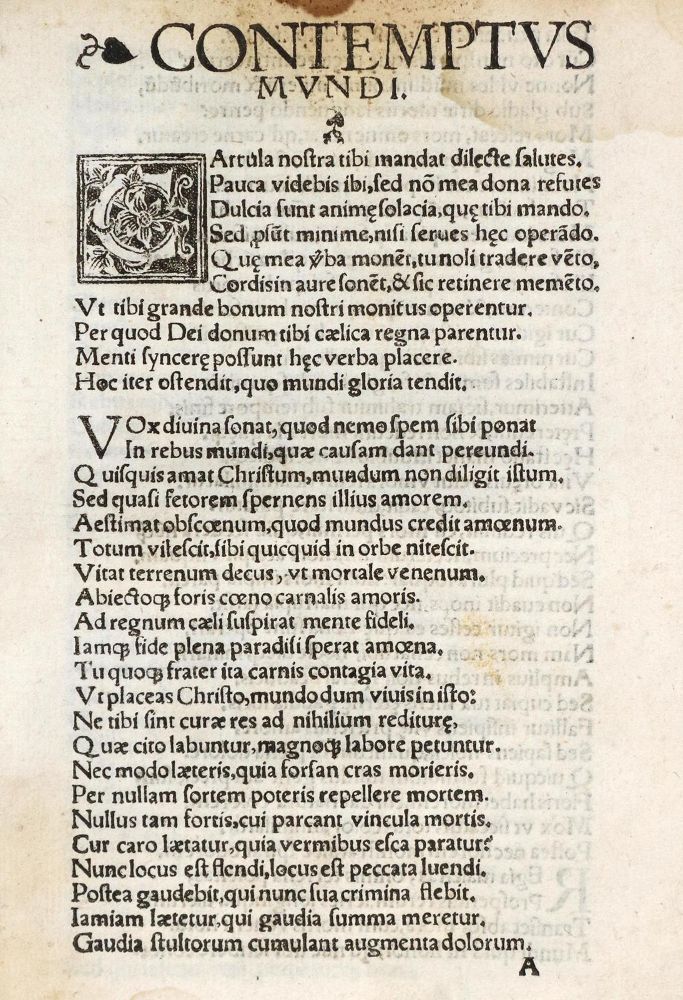 CONTEMPTVS
MVNDI.
CArtula nostra tibi mandat dilecte salutes.
Pauca videbis ibi,sed nõ mea dona refutes
Dulcia sunt animę solacia,quę tibi mando.
Sed ꝓsũt minime,nisi serues hęc operãdo.
Quę mea v̓ba monẽt,tu noli tradere vẽto,
Cordis in aure sonẽt,& sic retinere memẽto.
Vt tibi grande bonum nostri monitus operentur.
Per quod Dei donum tibi cælica regna parentur.
Menti syncerę possunt hęc verba placere.
Hoc iter ostendit,quo mundi gloria tendit.
VOx diuina sonat,quod nemo spem sibi ponat
In rebus mundi,quæ causam dant pereundi.
Quisquis amat Christum,mundum non diligit istum.
Sed quasi fetorem spernens illius amorem.
Aestimat obscœnum,quod mundus credit amœnum.
Totum vilescit,sibi quicquid in orbe nitescit.
Vitat terrenum decus,vt mortale venenum.
Abiectoqꝫ foris cœno carnalis amoris.
Ad regnum cæli suspirat mente fideli.
Iamqꝫ fide plena paradisi sperat amœna.
Tu quoqꝫ frater ita carnis contagia vita.
Vt placeas Christo,mundo dum viuis in isto:
Ne tibi sint curæ res ad nihilium rediturę,
Quæ cito labuntur,magnoqꝫ labore petuntur.
Nec modo læteris,quia forsan cras morieris.
Per nullam sortem poteris repellere mortem.
Nullus tam fortis,cui parcant vincula mortis.
Cur caro lætatur,quia vermibus esca paratur?
Nunc locus est flendi,locus est peccata luendi.
Postea gaudebit,qui nunc sua crimina flebit.
Iamiam lætetur,qui gaudia summa meretur.
Gaudia stultorum cumulant augmenta dolorum.
A